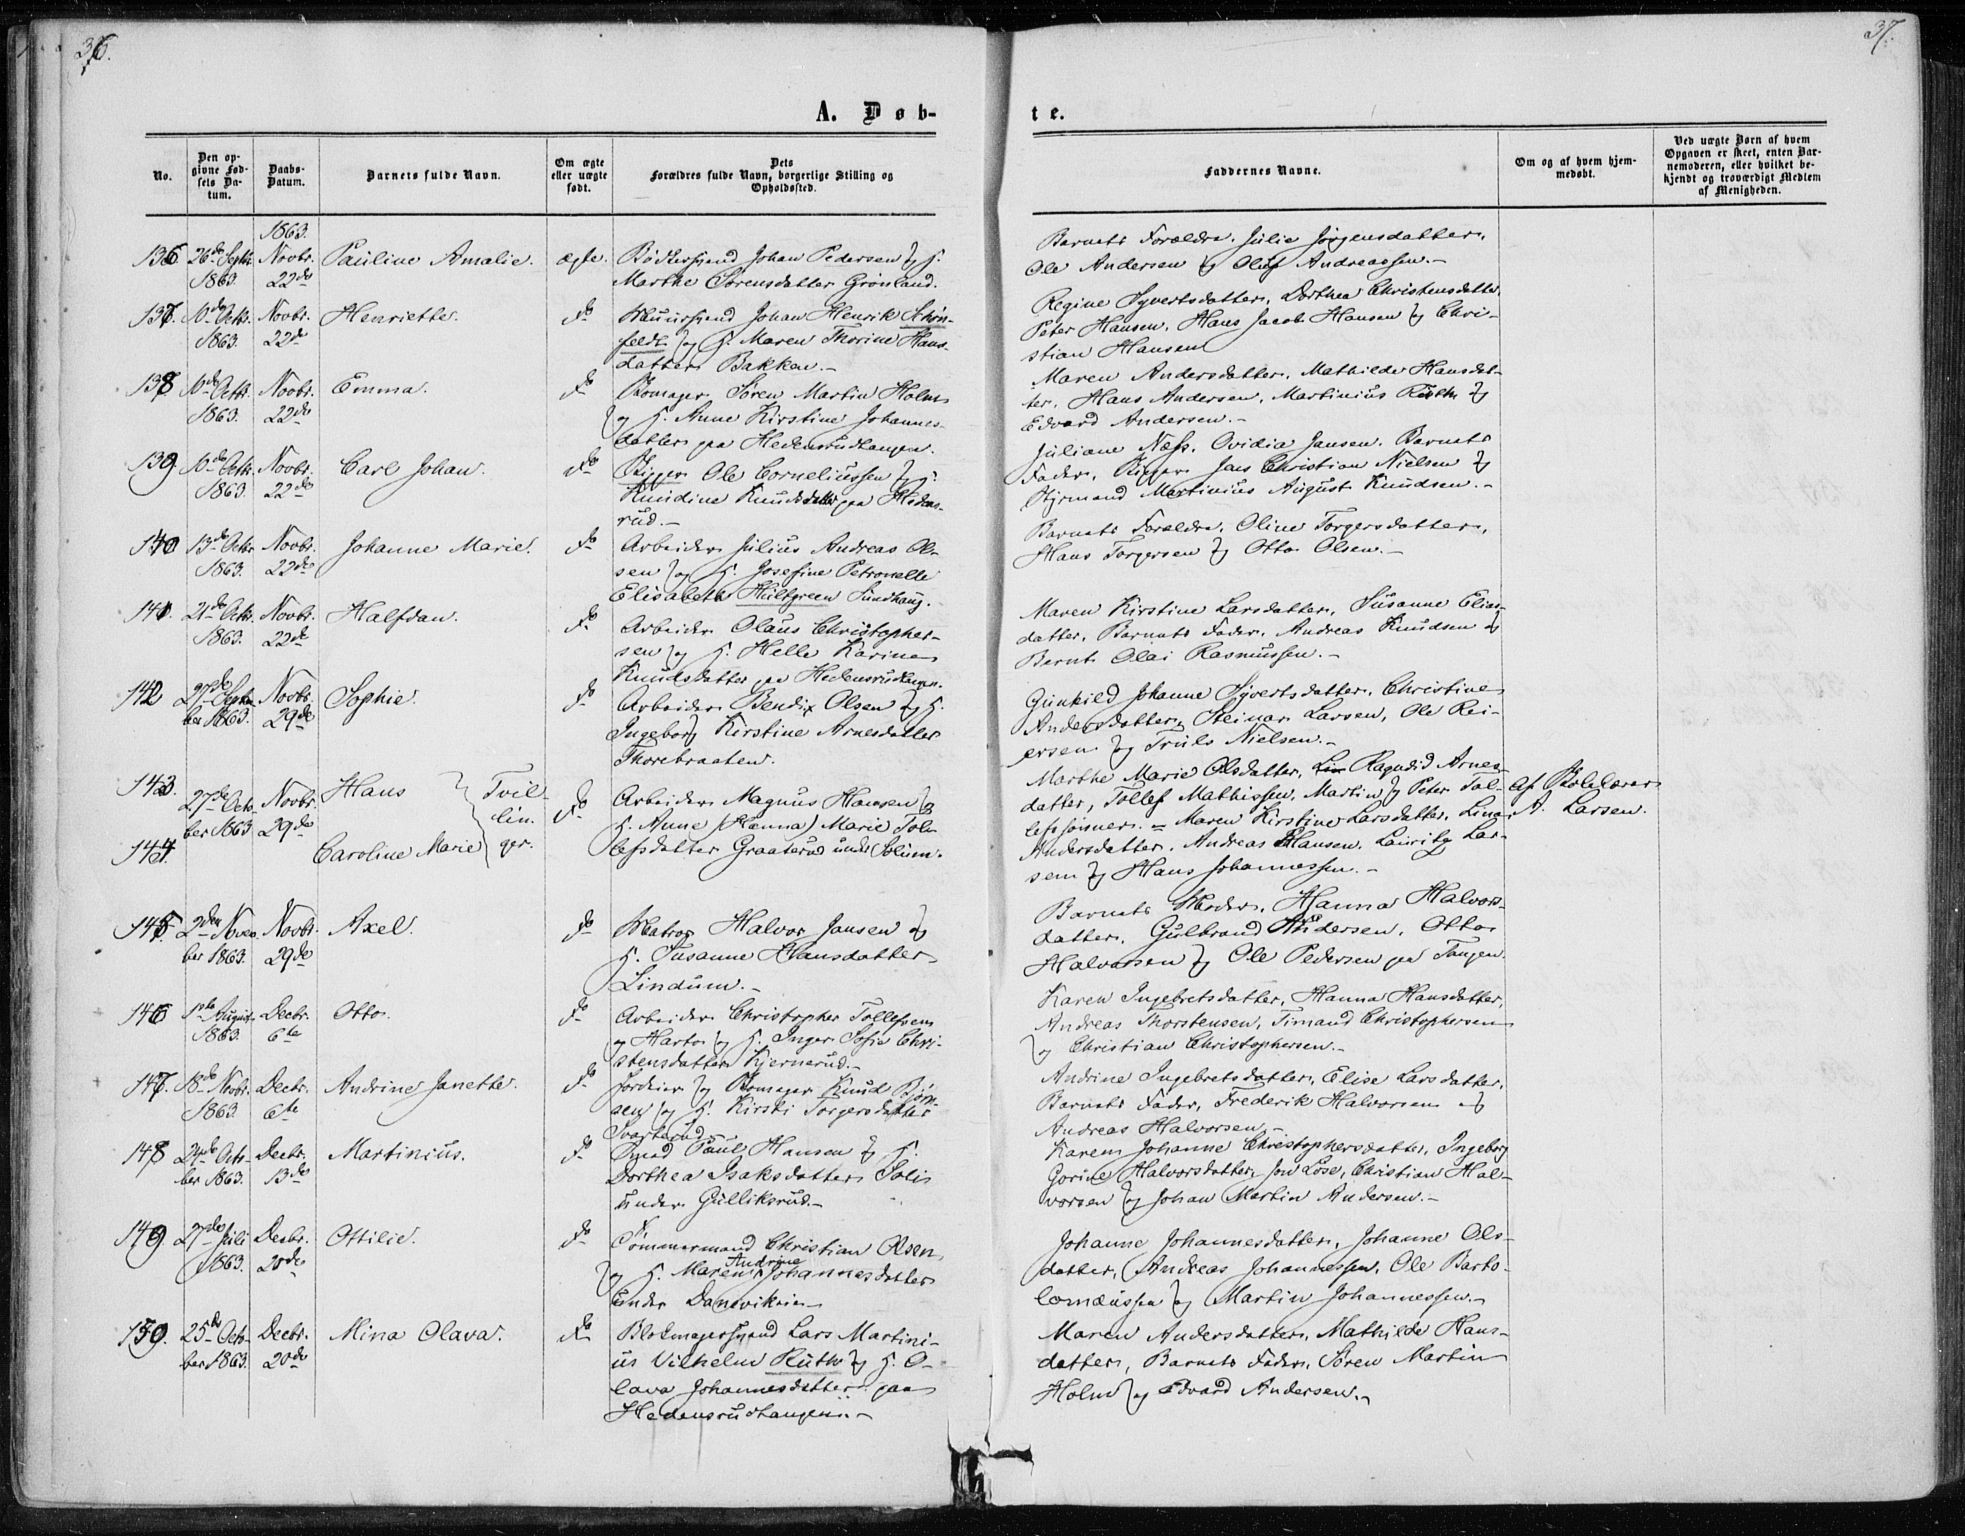 36.
37.
A. Døb-
te.
No.
Den op-
givne Fød-
sels Da-
tum.
Daabs-
Datum.
Barnets fulde Navn.
Om ægte
eller uægte
født.
Dets
Forældres fulde Navn, borgerlige Stilling og
Opholdssted.
Faddernes Navne.
Om og af hvem hjem-
medøbt.
Ved uægte Børn af hvem
Opgaven er skeet, enten Bar-
nemoderen, eller hvilket be-
kjendt og troværdigt Medlem
af Menigheden.
1863.
136 26de Septbr. Novbr. Pauline Amalie. ægte. Bødkersvend Johan Pedersen og H.
1863. 22de Marthe Sørensdatter Grønland.
Barnets Forældre. Julie Jørgensdatter,
Ole Andersen og Oluf Andreassen.-
137. 10de Octbr. Novbr. Henriette. do Muursvend Johan Henrik Schøn-
1863. 22de feldt og H. Maren Thorine Hans-
datter Bakken.-
Regine Syvertsdatter, Dorthea Christensdatter,
Peter Hansen, Hans Jacob Hansen og Chri-
stian Hansen
138 10de Octbr. Novbr. Emma. do Skomager Søren Martin Holm
1863. 22de og H. Anne Kirstine Johannes-
datter paa Hedensrudtangen.
Maren Andersdatter, Mathilde Hansdat-
ter, Hans Andersen, Martinius Ruth og
Edvard Andersen.-
139 10de Octbr. Novbr. Carl Johan. do Rigger Ole Corneliussen og H.
1863. 22de Knudine Knudsdatter paa Hedens-
rud.-
Juliane Næss, Ovidia Jansen, Barnets
Fader, Rigger Jens Christian Nielsen og
Styrmand Martinius August Knudsen.-
140 13de Octbr. Novbr. Johanne Marie. do Arbeider Julius Andreas Ol-
1863. 22de sen og H. Josefine Petronelle
Elisabeth Hultgreen Sundhaug.
Barnets Forældre, Oline Torgersdatter,
Hans Torgersen og Otto Olsen.-
141. 21de Octbr. Novbr. Halfdan. do Arbeider Olaus Christopher-
1863. 22de sen og H. Helle Karine
Knudsdatter paa Hedensrudtangen.
Maren Kirstine Larsdatter, Susanne Elias-
datter, Barnets Fader, Andreas Knudsen og
Bernt Olai Rasmussen.-
142 27de Septem- Novbr. Sophie. do Arbeider Bendix Olsen og H.
ber 1863. 29de Ingeborg Kirstine Arnesdatter
Thorebraaten.
Gunhild Johanne Syvertsdatter, Christine
Andersdatter, Steinar Larsen, Ole Rei-
ersen og Truls Nielsen.-
143. 27de Octo- Novbr. Hans Tvil- do Arbeider Magnus Hansen og
ber 1863 29de lin- H. Anne (Hanna) Marie Tol-
144. Caroline Marie ger. lefsdatter Graaterud under Solum.
Marthe Marie Olsdatter, Ragndid Arnes-
datter, Tollef Mathissen, Martin og Peter Tol-
lefssønner. = Maren Kirstine Larsdatter, Lina
Andersdatter, Andreas Hansen, Lauritz Lar-
sen og Hans Johannessen.-
Af Skolelærer
A. Larsen.
145 2den Novem- Novbr. Axel. do Matros Halvor Jansen og
ber 1863. 29de H. Susanne Hansdatter
Lindum.-
Barnets Moder, Hanna Halvors-
datter, Gulbrand Andersen, Otto
Halvorsen og Ole Pedersen paa Tangen.
146 1ste August Decbr. Otto. do Arbeider Christopher Tollefsen
1863. 6te og Harto og H. Inger Sofie Chri-
stensdatter Kjernerud.-
Karen Ingebretsdatter, Hanna Hansdatter,
Andreas Thorstensen, Timand Christophersen
og Christian Christophersen.-
147. 18de Novbr. Decbr. Andrine Janette. do Jordeier og Skomager Knud Bjørn-
1863. 6te sen og H. Kirsti Torgersdatter
Svarterud.-
Andrine Ingebretsdatter, Elise Larsdatter,
Barnets Fader, Frederik Halvorsen og
Andreas Halvorsen.-
148 24de Octo- Decbr. Martinius. do Smed Paul Hansen og H.
ber 1863. 13de Dorthea Isaksdatter Solis
under Gulliksrud.-
Karen Johanne Christophersdatter, Ingeborg
Gorine Halvorsdatter, Jon Løse, Christian Hal-
vorsen og Johan Martin Andersen.-
149 27de Juli Decbr. Ottilie. do Tømmermand Christian Olsen
1863. 20de og H. Maren Andrine Johannesdatter
under Dansviken.
Johanne Johannesdatter, Johanne Ols-
datter, Andreas Johannessen, Ole Barto-
lomæussen og Martin Johannessen.-
150. 25de Octo- Decbr. Mina Olava. do Blokmagersvend Lars Martini-
ber 1863. 20de us Vilhelm Ruth og H. O-
lava Johannesdatter paa
Hedensrudtangen.-
Maren Andersdatter, Mathilde Hans-
datter, Barnets Fader, Søren Martin
Holm og Edvard Andersen.-